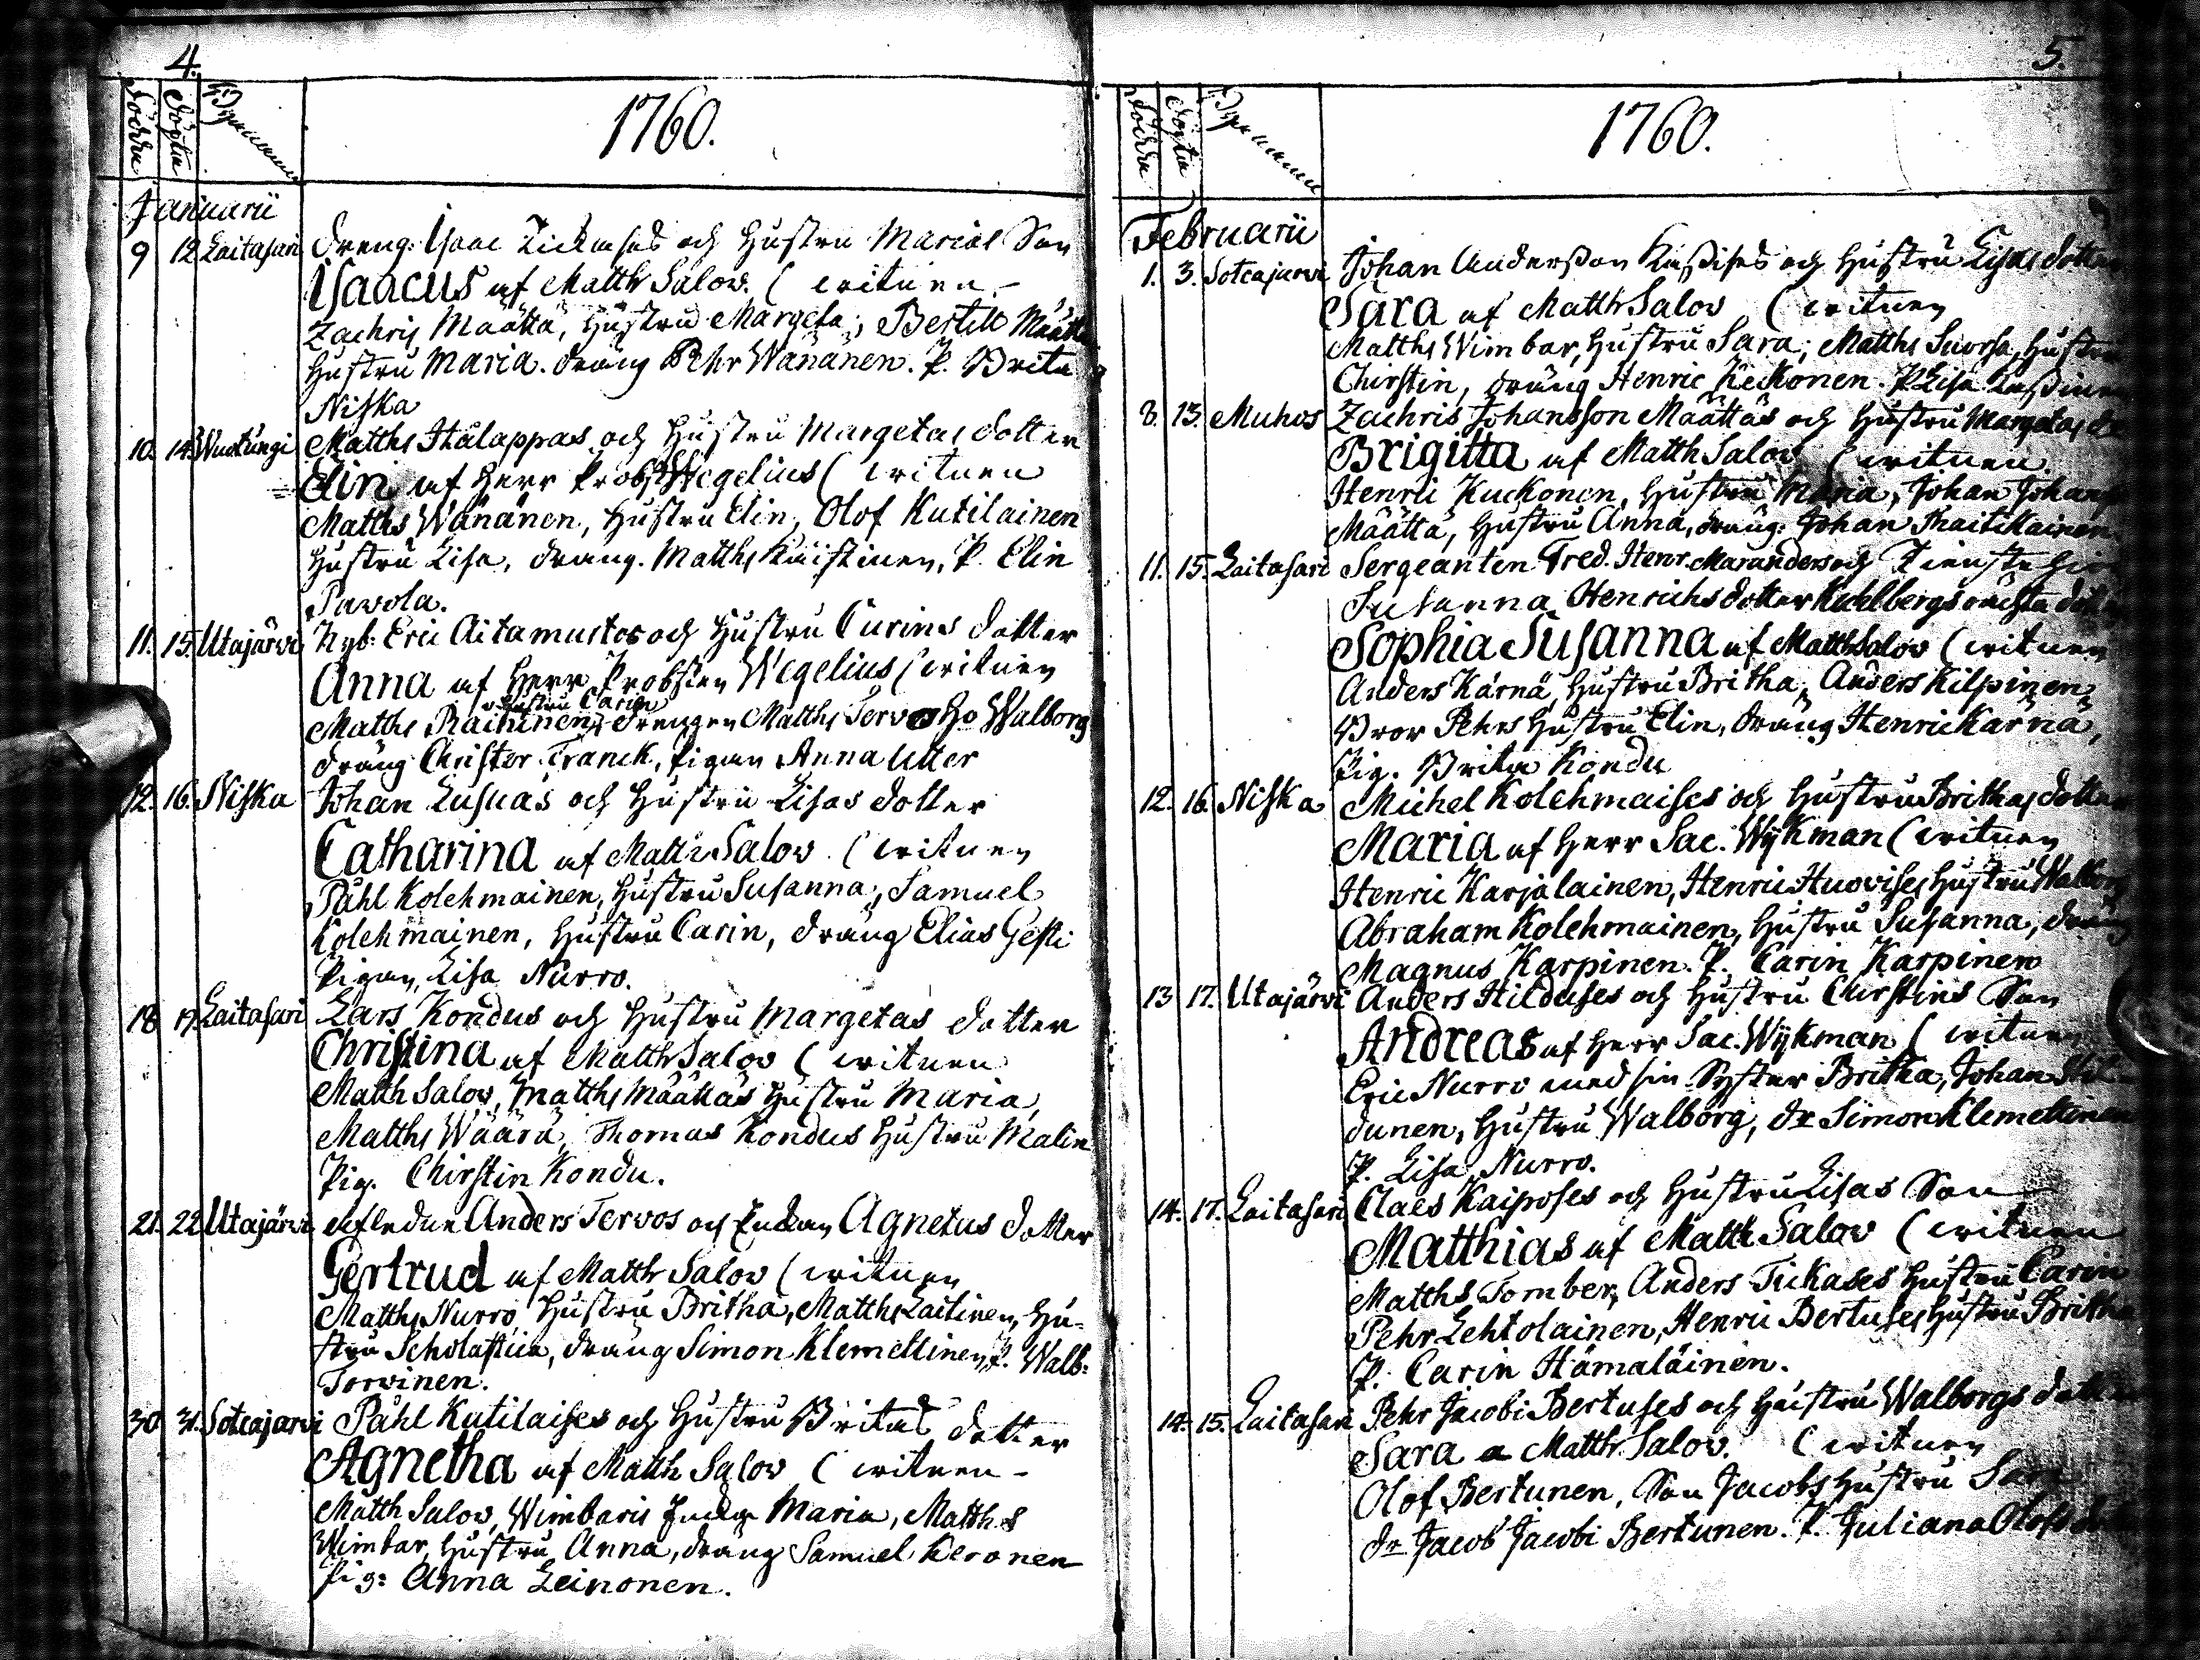 4.
Födda Döpta Bynamn
1760.
Januarii
9 12 Laitasari Dreng. Isaac Tickases och Hustru Marias Son
Isaacus af Matth Salov. ( witnen
Zachris Määttä, Hustru Margeta; Bertill Määttä
Hustru Maria. dräng Pehr Wänänen. P. Brita
Niska
10. 14. Wuotungi Matths Italappas och Hustru Margetas dotter
Elin af Herr Probst Wegelius ( witnen
Matths Wänänen, Hustru Elin, Olof Kutilainen
Hustru Lisa, dräng. Matths Küistinen, P. Elin
Pavola.
11. 15. Utajärvi Nyb. Eric Aitamurtos och Hustru Carins dotter
Anna af Herr Probsten Wegelius ( witnen
Hustru Carin
Matths Raihinen, Drengen Matths Tervos Ho Walborg
dräng Christer Franck, pigan Anna Utter
12. 16. Niska Johan Lusuas och Hustru Lisas dotter
Catharina af Matth Salov. ( witnen
Påhl Kolehmainen, Hustru Susanna, Samuel
Kolehmainen, Hustru Carin, dräng Elias Gesti
Pigan Lisa Nurro.
18 19. Laitasari Lars Kondus och Hustru Margetas dotter
Christina af Matth Salov ( witnen
Matth Salov, Matths Määttäs Hustru Maria,
Matths Wäärä, Thomas Kondus Hustru Malin
Pig. Chirstin Kondu.
21. 22 Utajärvi Afledne Anders Tervos och Enkan Agnetas dotter
Gertrud af Matth Salov ( witnen
Matths Nurro, Hustru Britha, Matths Laitinen, Hu-
stru Scholastica, dräng Simon Klemettinen, P. Walb:
Torvinen.
30 31. Sotcajarvi Påhl Kutilaises och Hustru Britas dotter
Agnetha af Matth Salov ( witnen
Matth Salov, Wimbaris Enka Maria, Matths
Wimbar, Hustru Anna, dräng Samuel Keronen
Pig: Anna Leinonen.
5.
Födda Döpta Bynamn
1760.
Februarii
1. 3. Sotcajarvi Johan Andersson Kassises och Hustru Lisas dotter
Sara af Matth Salov ( witnen
Matths Wimbar, Hustru Sara; Matths Suorsa, Hustru
Chirstin, dräng Henric Keckonen. P Lisa
8. 13. Muhos Zachris Johansson Määttäs och Hustru Margetas
Brigitta af Matth Salov ( witnen.
Henric Kuckonen, Hustru Maria, Johan Johans
Määttä, Hustru Anna, dräng. Johan
11. 15. Laitasari Sergeanten Fred. Henr. Maranders och Tienste
Susanna Henrichs dotter Kahlbergs oächta dotter
Sophia Susanna af Matth Salov ( witnen
Anders Kärnä, Hustru Britha, Anders Kilpinen,
Bror Pehrs Hustru Elin, dräng Henric Kärnä,
Pig. Brita Kondu
12. 16. Niska Michel Kolehmaises och Hustru Brithas dotter
Maria af Herr Sac. Wÿkman ( witnen
Henric Karjalainen, Henric Huovises Hustru Walborg
Abraham Kolehmainen, Hustru Susanna, dräng
Magnus Karpinen. P. Carin Karpinen
13 17. Utajärvi Anders Hilduses och Hustru Chirstins Son
Andreas af Herr Sac. Wÿkman ( witnen
Eric Nurro med sin Syster Britha, Johan Hil-
dunen, Hustru Walborg, dr Simon Klemettinen
P. Lisa Nurro.
14. 17. Laitasari Claes Kaiposes och Hustru Lisas Son
Matthias af Matth Salov ( witnen
Matths Tomber, Anders Tickases Hustru Carin
Pehr Lehtolainen, Henric Bertuses Hustru Britha
P. Carin Hämäläinen.
14. 15. Laitasari Pehr Jacobi Bertuses och Hustru Walborgs dotter
Sara a Matth Salov. ( witnen
Olof Bertunen, Son Jacobs Hustru Sara
dr Jacob Jacobi Bertunen. P. Juliana Olofs